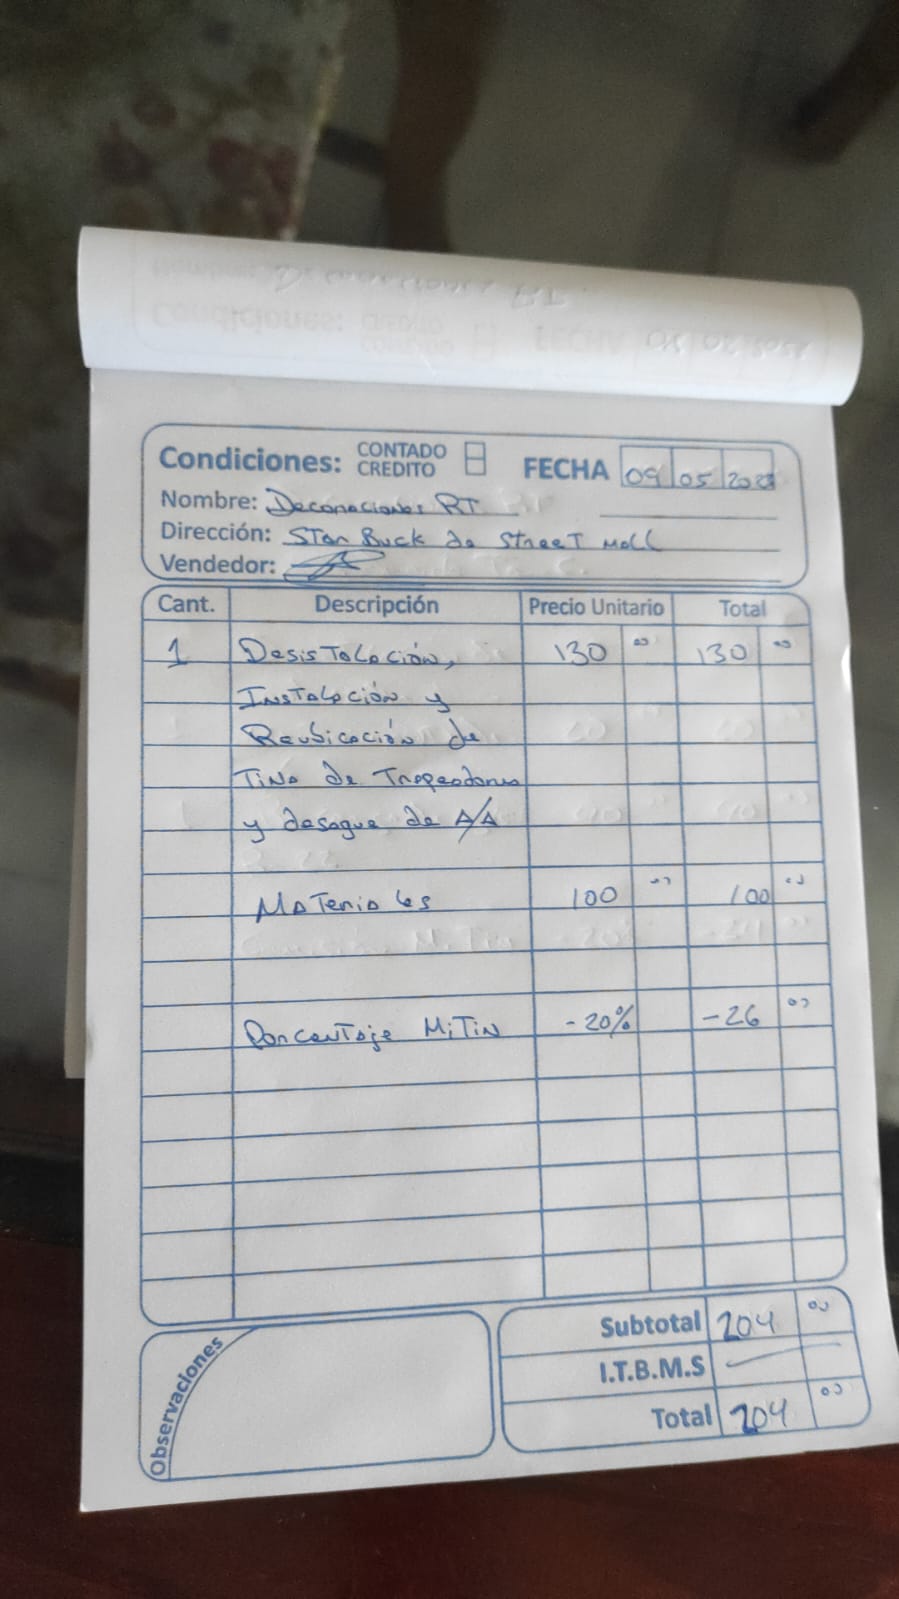 Condiciones: CONTADO CREDITO FECHA 09 05 202
Nombre: Decoraciones RT
Dirección: Star Buck de Street Mall
Vendedor:
Cant. Descripción Precio Unitario Total
1 Desistalación, 130 00 130 00
Instalación y
Reubicación de
Tina de Trapeadores
y desague de A/A
Materiales 100 00 100 00
Porcentaje MiTin -20% -26 00
Subtotal 204 00
I.T.B.M.S —
Total 204 00
Observaciones